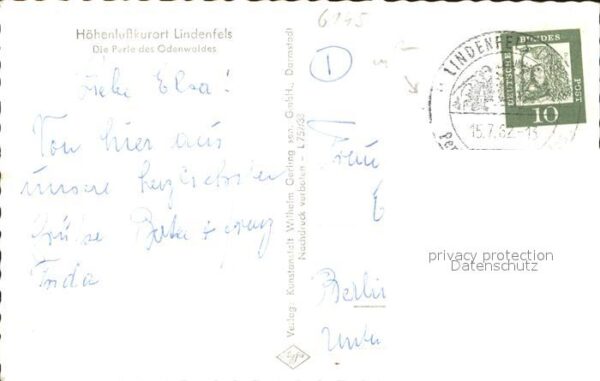 Höhenluftkurort Lindenfels
Die Perle des Odenwaldes
Liebe Elsa!
Von hier aus
unsere herzlichsten
Grüße Berta + Franz
Frida
Verlag: Kunstanstalt Wilhelm Gerling sen. GmbH., Darmstadt
Nachdruck verboten –
6145
1
LINDENFELS
15.7.62-18
DEUTSCHE BUNDES POST
10
Frau
E
Berlin
privacy protection
Datenschutz